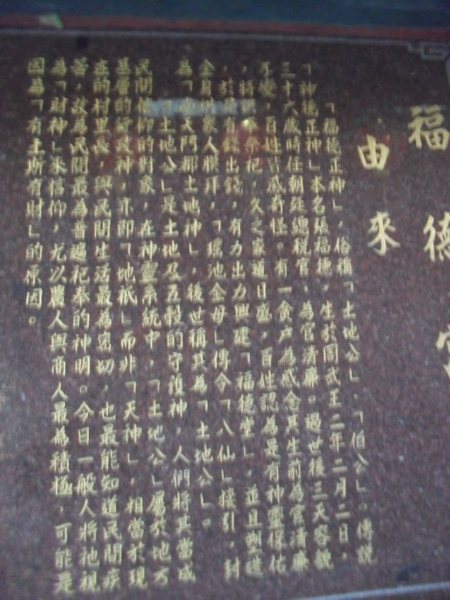 福德宮
由來
「福德正神」,俗稱「土地公」、「伯公」,傳說
「神德正神」本名張福德,生於周武王二年二月二日,
三十六歲時任朝廷總稅官,為官清廉。過世後三天容貌
不變,百姓皆感奇怪。有一貧戶為感念其生前為官清廉
,持誠奉祀,久之家道日盛,百姓認為是有神靈保佑
,於是有錢出錢,有力出力興建「福德堂」,並且塑造
金身供眾人膜拜,「瑤池金母」傳令「八仙」接引,封
為「南天門都土地神」,後世稱其為「土地公」。
「土地公」是土地及五穀的守護神,人們將其當成
民間信仰的對象,在神靈系統中,「土地公」屬於地方
基層的行政神,亦即「地祇」而非「天神」,相當於現
在的村里長,與民間生活最為密切,也最能知道民間疾
苦,故為民間最為普遍祀奉的神明。今日一般人將祂視
為「財神」來信仰,尤以農人與商人最為積極,可能是
因為「有土斯有財」的原因。